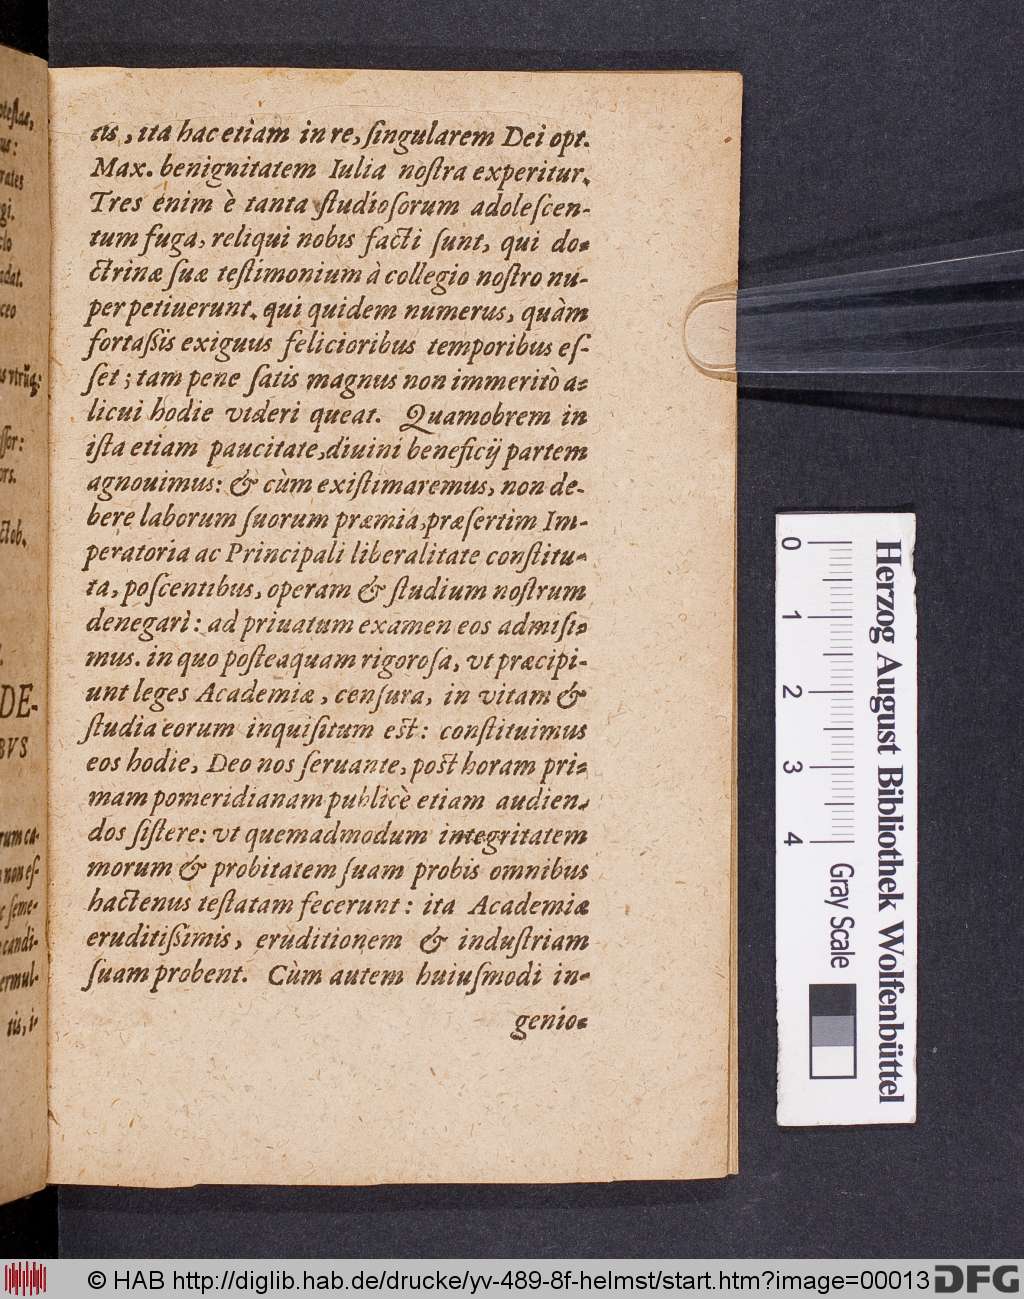 tis, ita hac etiam in re, ſingularem Dei opt.
Max. benignitatem Iulia noſtra experitur.
Tres enim è tanta ſtudioſorum adoleſcen-
tum fuga, reliqui nobis facti ſunt, qui do-
ctrinæ ſuæ teſtimonium à collegio noſtro nu-
per petiuerunt. qui quidem numerus, quàm
fortaſsis exiguus felicioribus temporibus eſ-
ſet; tam pene ſatis magnus non immeritò a-
licui hodie videri queat. Quamobrem in
iſta etiam paucitate, diuini beneficij partem
agnouimus: & cùm exiſtimaremus, non de-
bere laborum ſuorum præmia, præſertim Im-
peratoria ac Principali liberalitate conſtitu-
ta, poſcentibus, operam & ſtudium noſtrum
denegari: ad priuatum examen eos admiſi-
mus. in quo poſteaquam rigoroſa, vt præcipi-
unt leges Academiæ, cenſura, in vitam &
ſtudia eorum inquiſitum eſt: conſtituimus
eos hodie, Deo nos ſeruante, poſt horam pri-
mam pomeridianam publicè etiam audien-
dos ſiſtere: vt quemadmodum integritatem
morum & probitatem ſuam probis omnibus
hactenus teſtatam fecerunt: ita Academiæ
eruditiſsimis, eruditionem & induſtriam
ſuam probent. Cùm autem huiuſmodi in-
genio-
rates
ceo
ctob.
DE-
BVS
rum ca-
non eſ-
ſeme-
candi-
ermul-
tis, i-
Herzog August Bibliothek Wolfenbüttel
0 1 2 3 4 Gray Scale
© HAB http://diglib.hab.de/drucke/yv-489-8f-helmst/start.htm?image=00013
DFG